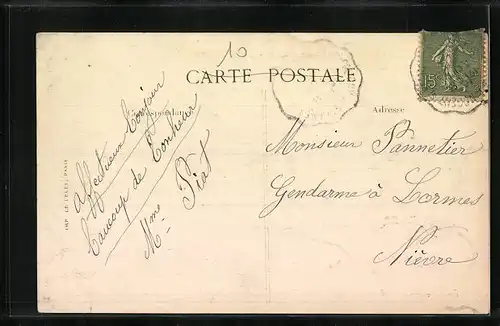 10
CARTE POSTALE
Correspondance
Adresse
15
affectueux bonjour
baucoup de bonheur
Mme Piat
Monsieur Pannetier
Gendarme à Lormes
Nièvre